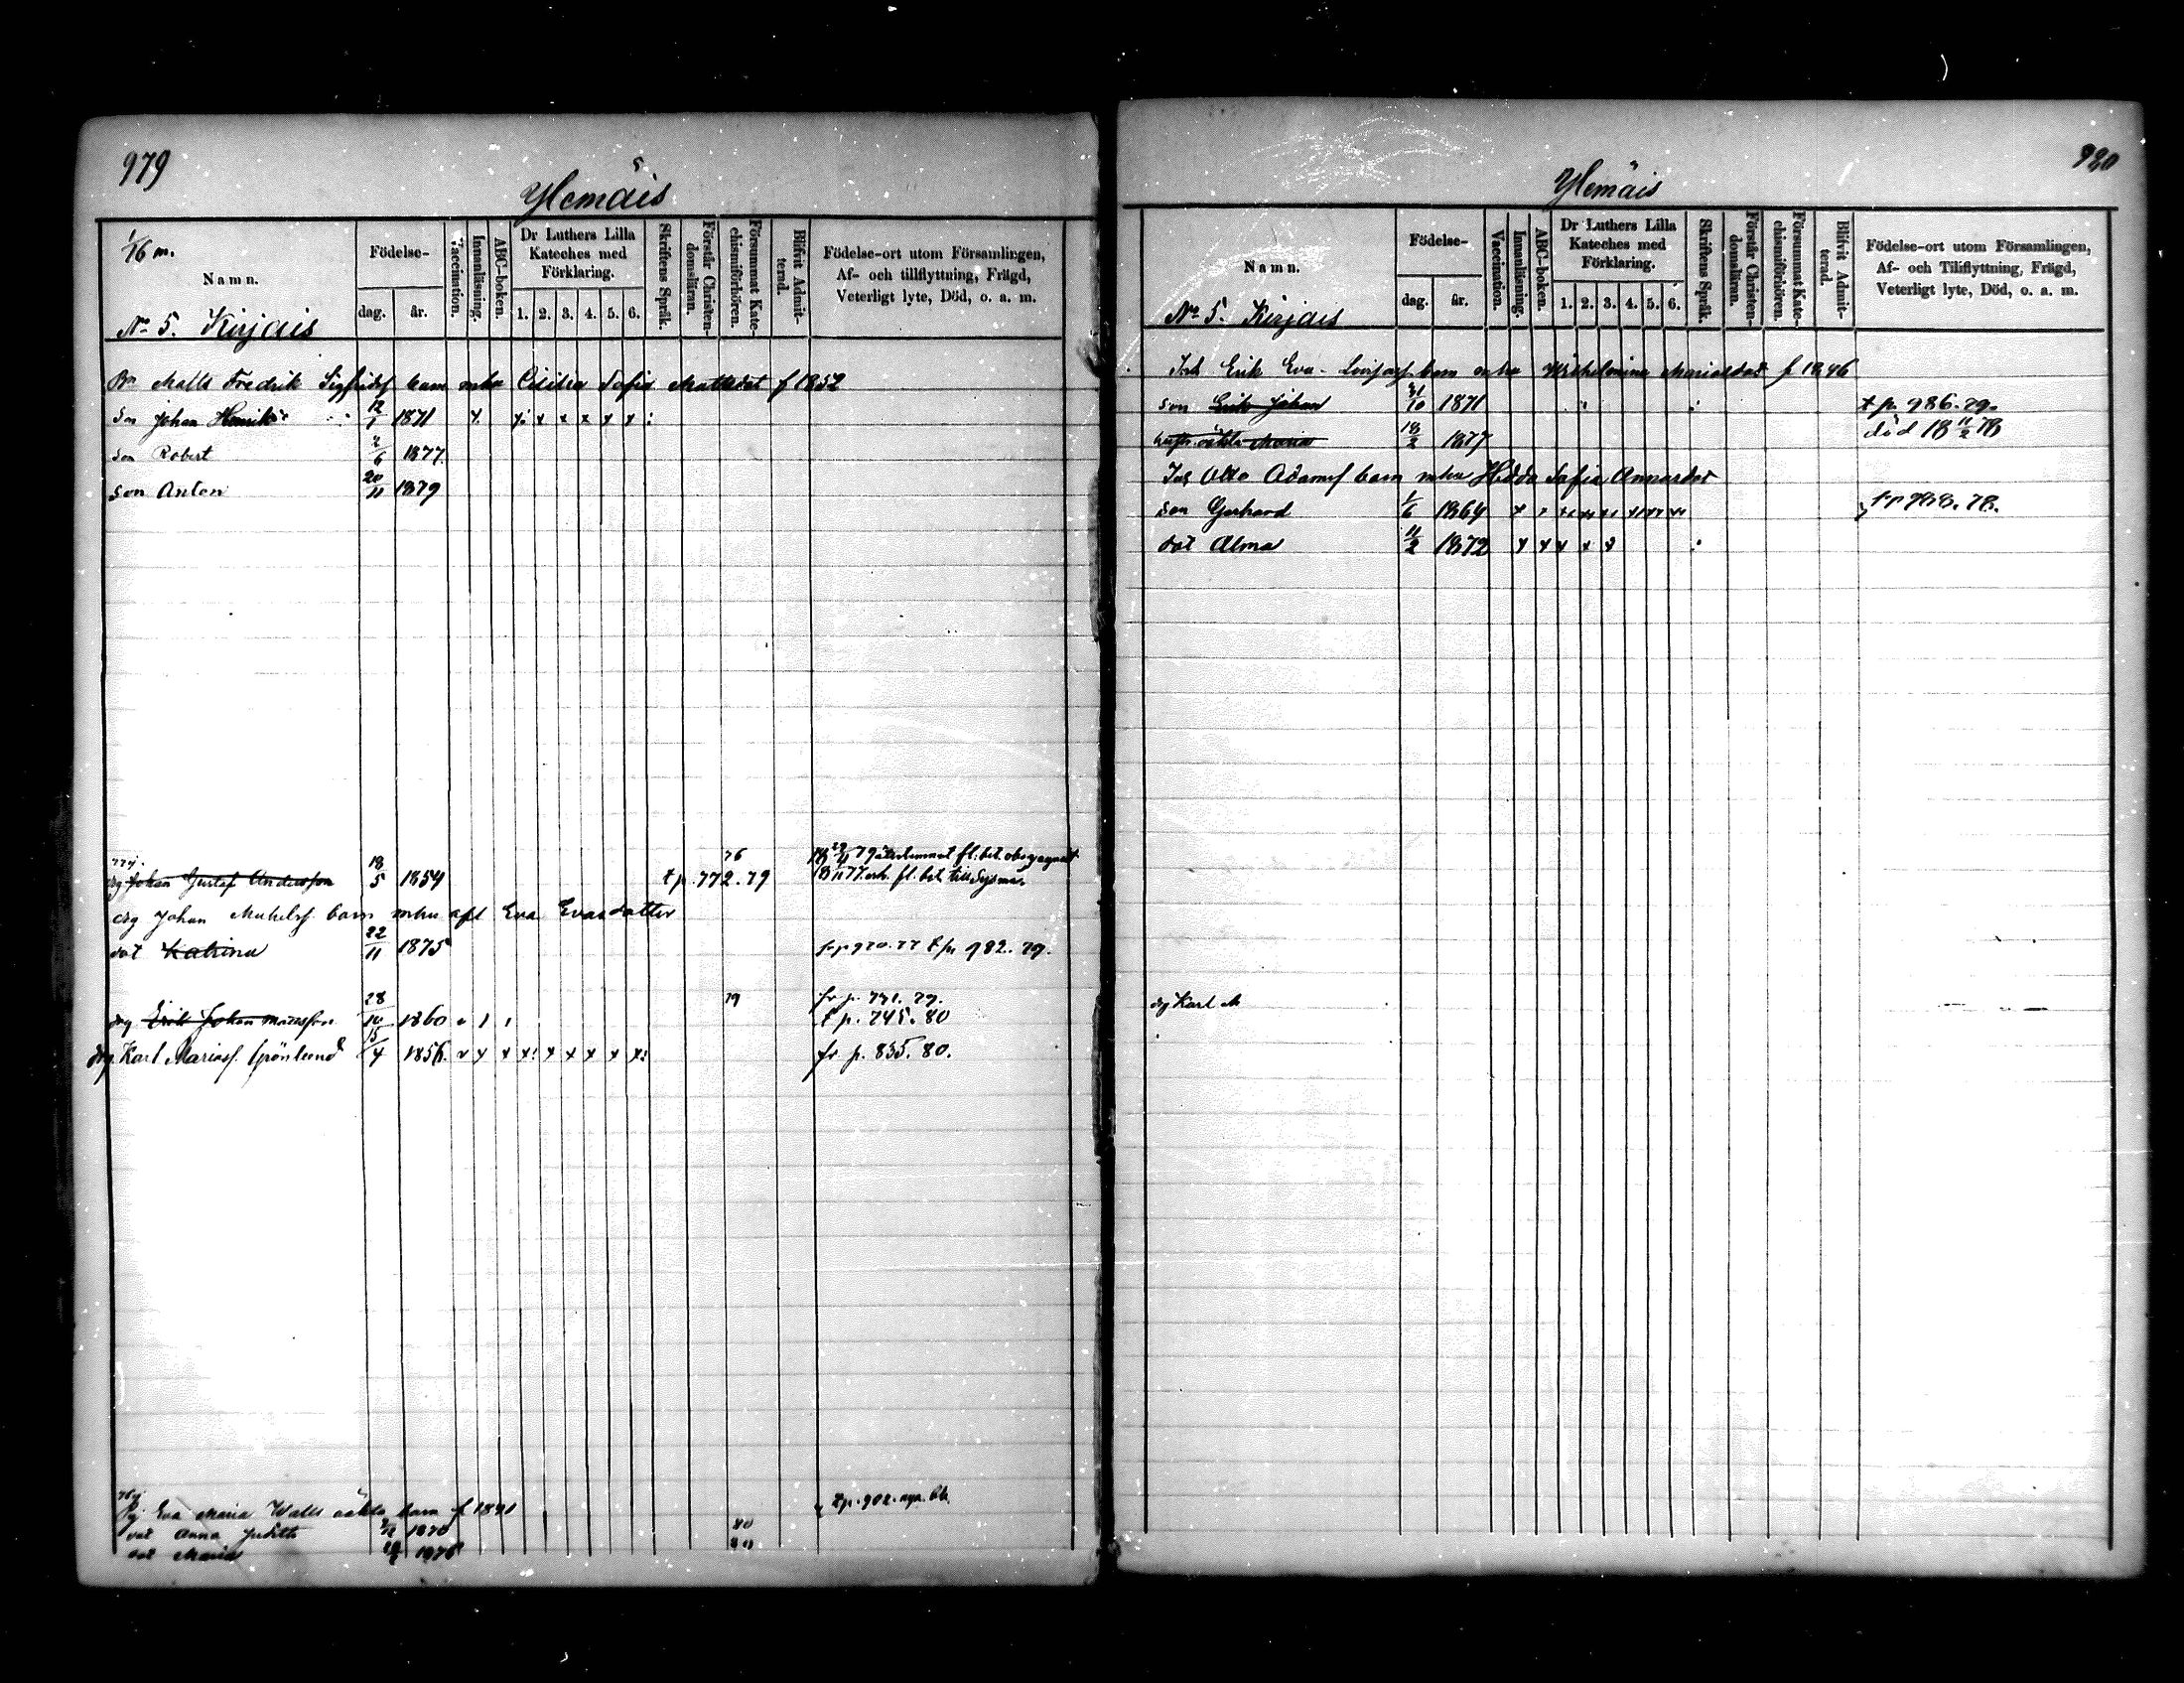 979
Ylemäis
1/16 m.
Namn.
No 5. Kirjais
Födelse-
dag.
år.
Vaccination.
Innanläsning.
ABC-boken.
Dr Luthers Lilla Kateches med Förklaring.
1. 2. 3. 4. 5. 6.
Skriftens Språk.
Förstår Christen-domsläran.
Försummat Kate-chismiförhören.
Blifvit Admit-terad.
Födelse-ort utom Församlingen,
Af- och tillflyttning, Frägd,
Veterligt lyte, Död, o. a. m.
Bn Matts Fredrik Sigfridsf barn mhu Sofia Mattsdot f 1852
Son Johan Henrik 12/1 1871 x x x x x x x
Son Robert 2/6 1877
Son Anton 20/11 1879
drg Johan Gustaf Andersson 18/5 1854 t p. 772. 79 76
drg Johan Michelsf. barn mhu afl Eva Evasdotter
dot Katrina 22/11 1875 t p. 982. 79.
drg Erik Johan Mattsson 28/10 1860 79 fr p. 771. 79.
t p. 745. 80
drg Karl Mariasf. Grönlund 15/4 1856 x x x x x x x x x fr p. 835. 80.
Pig Eva Maria Walls oäkta barn f 1841
dot Anna Judith 1870 80
dot Maria 1876 80
980
Ylemäis
Namn.
No 5. Kirjais
Födelse-
dag.
år.
Vaccination.
Innanläsning.
ABC-boken.
Dr Luthers Lilla Kateches med Förklaring.
1. 2. 3. 4. 5. 6.
Skriftens Språk.
Förstår Christen-domsläran.
Försummat Kate-chismiförhören.
Blifvit Admit-terad.
Födelse-ort utom Församlingen,
Af- och Tillflyttning, Frägd,
Veterligt lyte, Död, o. a. m.
Inh Erik Eva-Lovisasf. barn mhu Wilhelmina Mariasdot f 1846
Son Erik Johan 31/10 1871 t p. 986. 79.
oäkta Maria 18/2 1877 död 18 11/2 78
Inh Otto Adamsf barn mhu Hedda Sofia Annasdot
Son Gerhard 1/6 1864
dot Alma 11/2 1872 x x x x x
drg Karl M